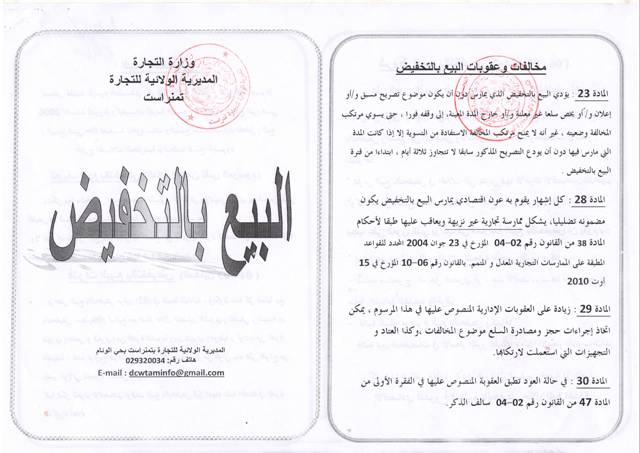 وزارة التجارة
المديرية الولائية للتجارة
تمنراست
البيع بالتخفيض
المديرية الولائية للتجارة بتمنراست بحي الوئام
هاتف رقم: 029320034
E-mail : dcwtaminfo@gmail.com
مخالفات وعقوبات البيع بالتخفيض
المادة 23 : يؤدي البيع بالتخفيض الذي يمارس دون أن يكون موضوع تصريح مسبق و/أو
إعلان و/أو يخص سلعا غير معلنة و/أو خارج المدة المعينة، إلى وقفه فورا ، حتى يسوي مرتكب
المخالفة وضعيته ، غير أنه لا يمنح مرتكب المخالفة الاستفادة من التسوية إلا إذا كانت المدة
التي مارس فيها دون أن يودع التصريح المذكور سابقا لا تتجاوز ثلاثة أيام ، ابتداءا من فترة
البيع بالتخفيض .
المادة 28 : كل إشهار يقوم به عون اقتصادي يمارس البيع بالتخفيض يكون
مضمونه تضليليا، يشكل ممارسة تجارية غير نزيهة ويعاقب عليها طبقا لأحكام
المادة 38 من القانون رقم 02-04 المؤرخ في 23 جوان 2004 المحدد للقواعد
المطبقة على الممارسات التجارية المعدل و المتمم. بالقانون رقم 06-10 المؤرخ في 15
أوت 2010
المادة 29 : زيادة على العقوبات الإدارية المنصوص عليها في هذا المرسوم ، يمكن
اتخاذ إجراءات حجز ومصادرة السلع موضوع المخالفات ،وكذا العتاد و
التجهيزات التي استعملت لارتكابها.
المادة 30 : في حالة العود تطبق العقوبة المنصوص عليها في الفقرة الأولى من
المادة 47 من القانون رقم 02-04 سالف الذكر.